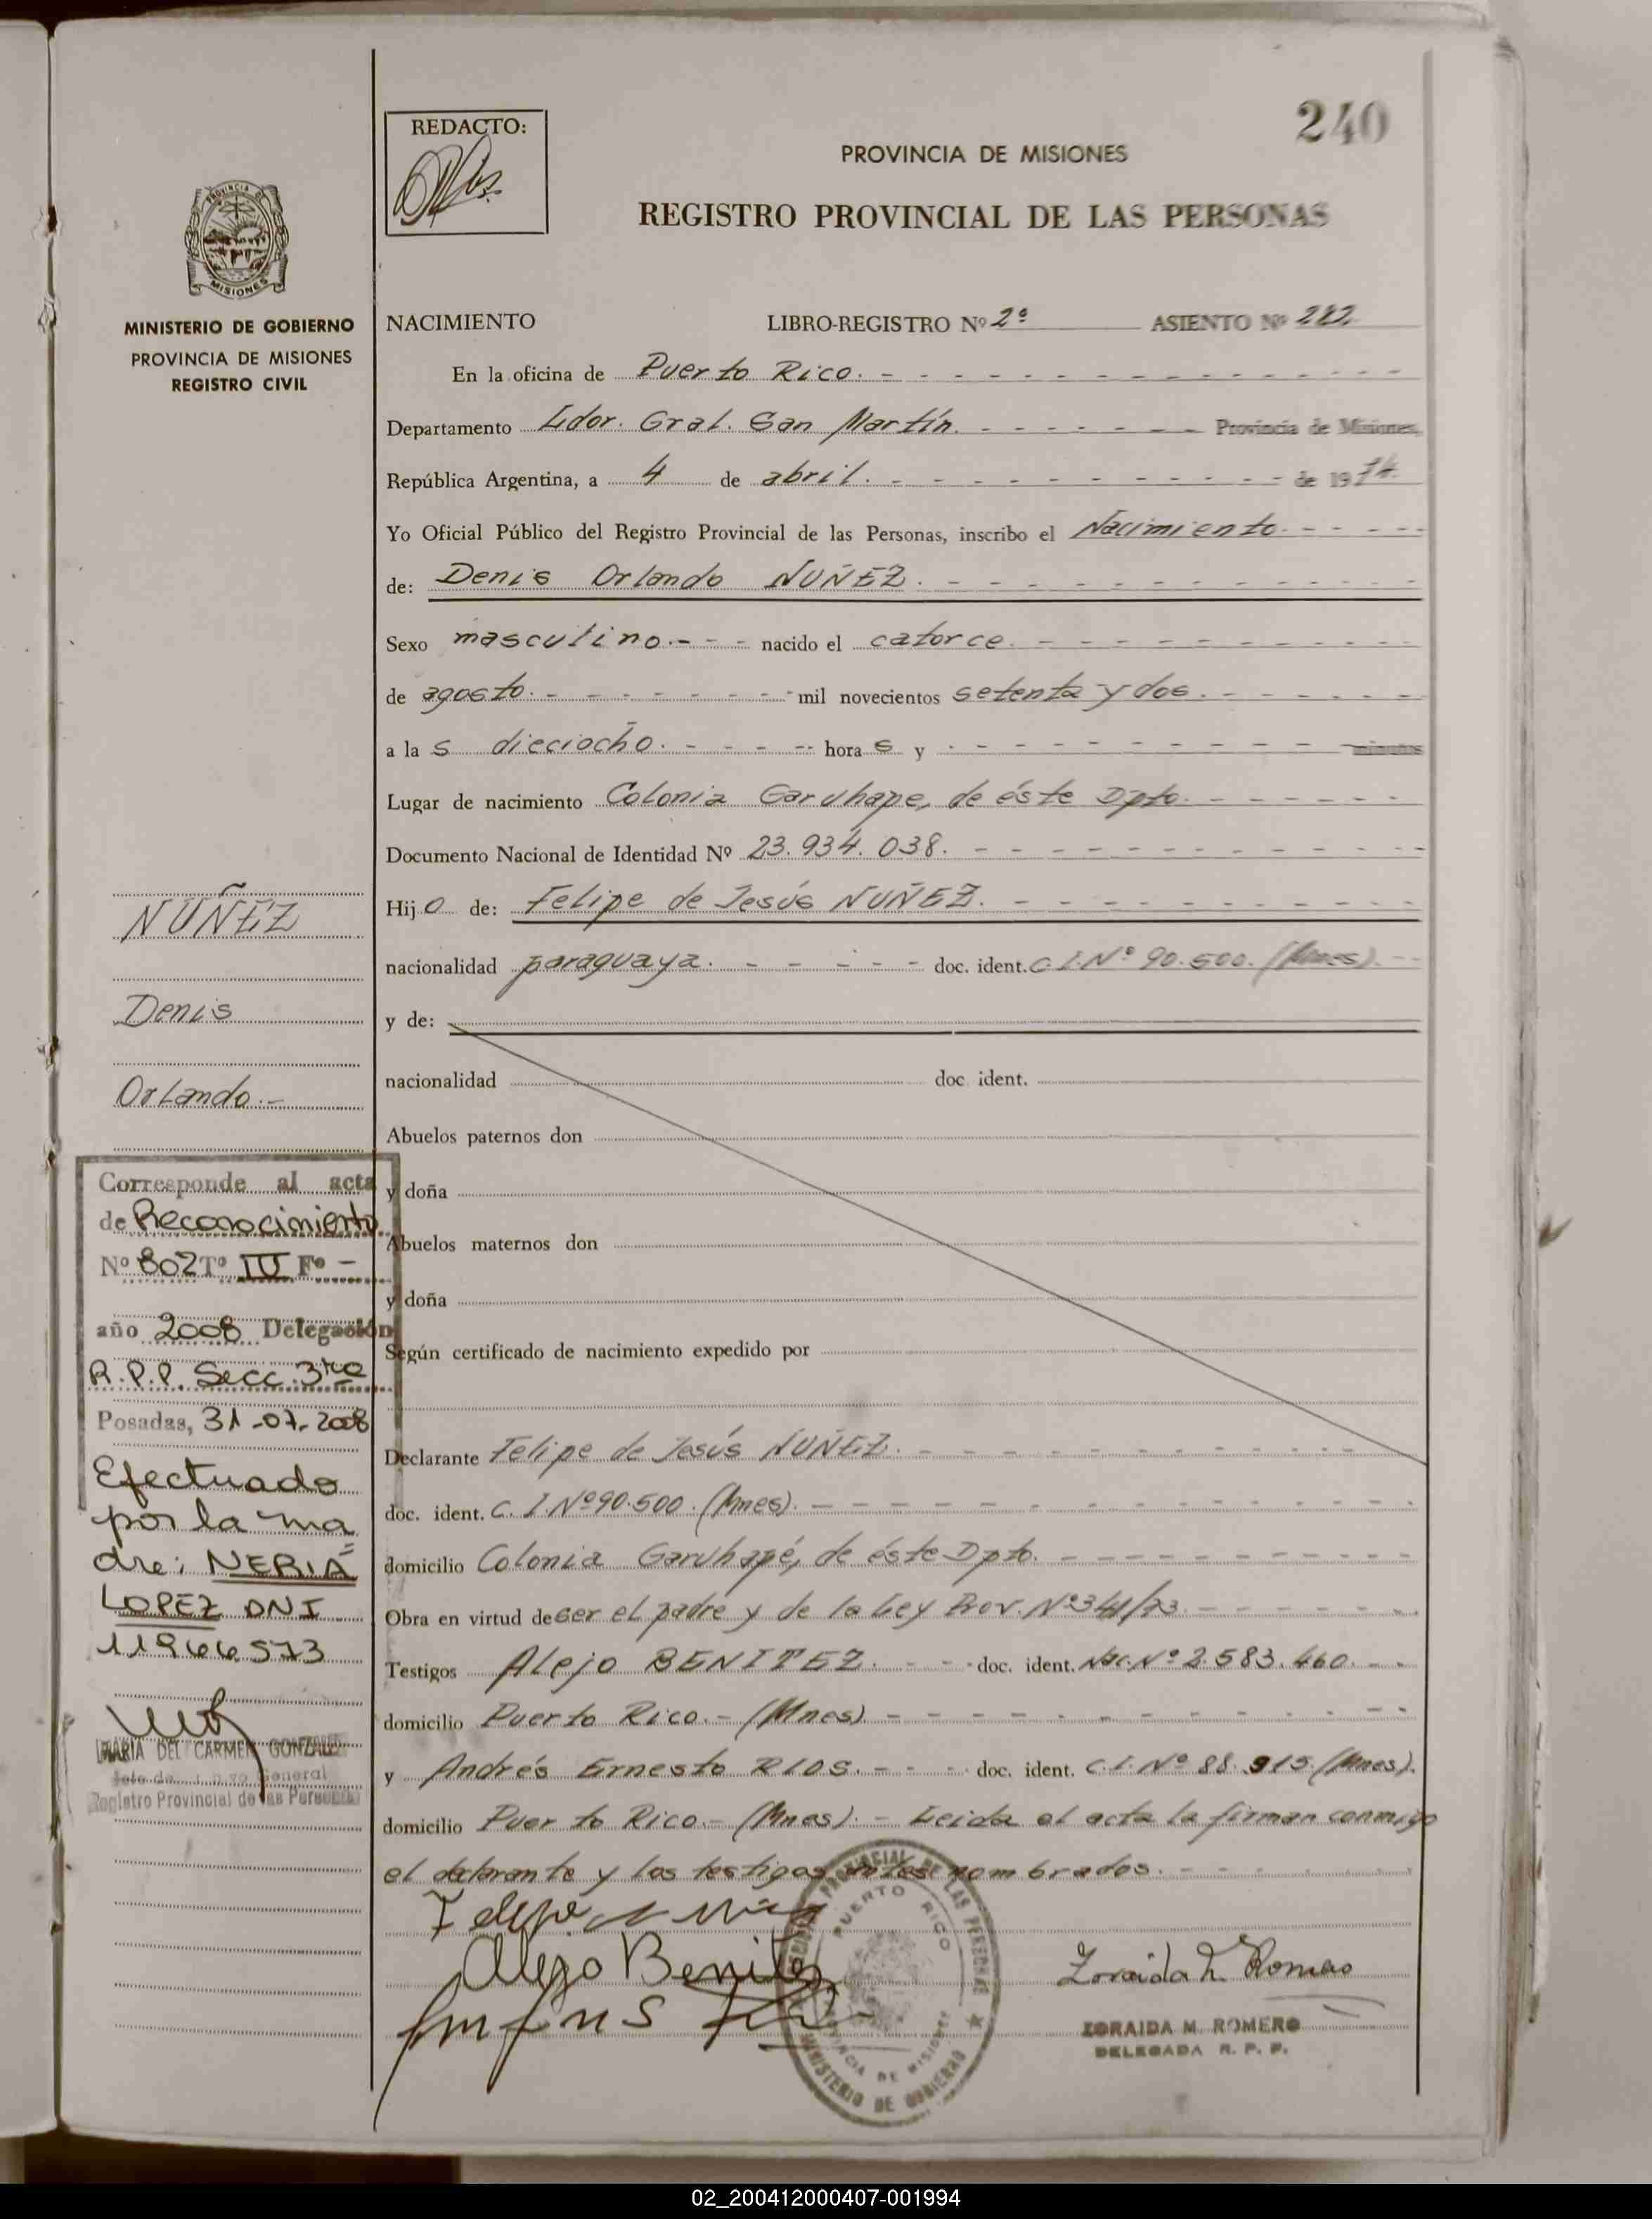 240
REDACTO:
PROVINCIA DE MISIONES
REGISTRO PROVINCIAL DE LAS PERSONAS
PROVINCIA DE
MISIONES
MINISTERIO DE GOBIERNO
PROVINCIA DE MISIONES
REGISTRO CIVIL
NACIMIENTO LIBRO-REGISTRO Nº 2º ASIENTO Nº 282.
En la oficina de Puerto Rico. - - - - - - - - - - - - - - -
Departamento Ldor. Gral. San Martín. - - - - - - - Provincia de Misiones,
República Argentina, a 4 de abril. - - - - - - - - - - de 1974.
Yo Oficial Público del Registro Provincial de las Personas, inscribo el Nacimiento. - - - -
de: Denis Orlando NUÑEZ. - - - - - - - - - - - -
Sexo masculino. - - - nacido el catorce. - - - - - - - - - -
de agosto. - - - - - - - mil novecientos setenta y dos. - - - - - -
a las dieciocho. - - - - - horas y - - - - - - - - - - minutos
Lugar de nacimiento Colonia Garuhape, de éste Dpto. - - - - - -
Documento Nacional de Identidad Nº 23.934.038. - - - - - - - - - - -
Hijo de: Felipe de Jesús NUÑEZ. - - - - - - - - - -
nacionalidad paraguaya. - - - - - - doc. ident. C.I.Nº 90.500. (Mnes). - -
y de:
nacionalidad doc. ident.
Abuelos paternos don
y doña
Abuelos maternos don
y doña
Según certificado de nacimiento expedido por
Declarante Felipe de Jesús NUÑEZ. - - - - - - - - - - - -
doc. ident. C. I. Nº 90.500. (Mnes). - - - - - - - - - - - -
domicilio Colonia Garuhapé, de éste Dpto. - - - - - - - - - -
Obra en virtud de ser el padre y de la Ley Prov. Nº 341/73. - - - - - -
Testigos Alejo BENITEZ. - - - doc. ident. Nº 2.583.460. - -
domicilio Puerto Rico. - (Mnes) - - - - - - - - - - - -
y Andrés Ernesto RIOS. - - - doc. ident. C.I. Nº 88.915. (Mnes).
domicilio Puerto Rico. - (Mnes). - Leida el acta la firman conmigo
el declarante y los testigos antes nombrados. - - - - - -
NUÑEZ
Denis
Orlando. -
Corresponde al acta
de Reconocimiento
Nº 802 Tº IV Fº -
año 2008 Delegación
R.P.P. Secc. 3ra
Posadas, 31-07-2008
Efectuado
por la ma
dre: NERIA
LOPEZ DNI
11966573
MARIA DEL CARMEN GONZALEZ
General
Registro Provincial de las Personas
Alejo Benitez
PROVINCIAL DE LAS PERSONAS
PUERTO RICO
PROVINCIA DE MISIONES
MINISTERIO DE GOBIERNO
Zoraida M. Romero
ZORAIDA M. ROMERO
DELEGADA R. P. P.
02_200412000407-001994